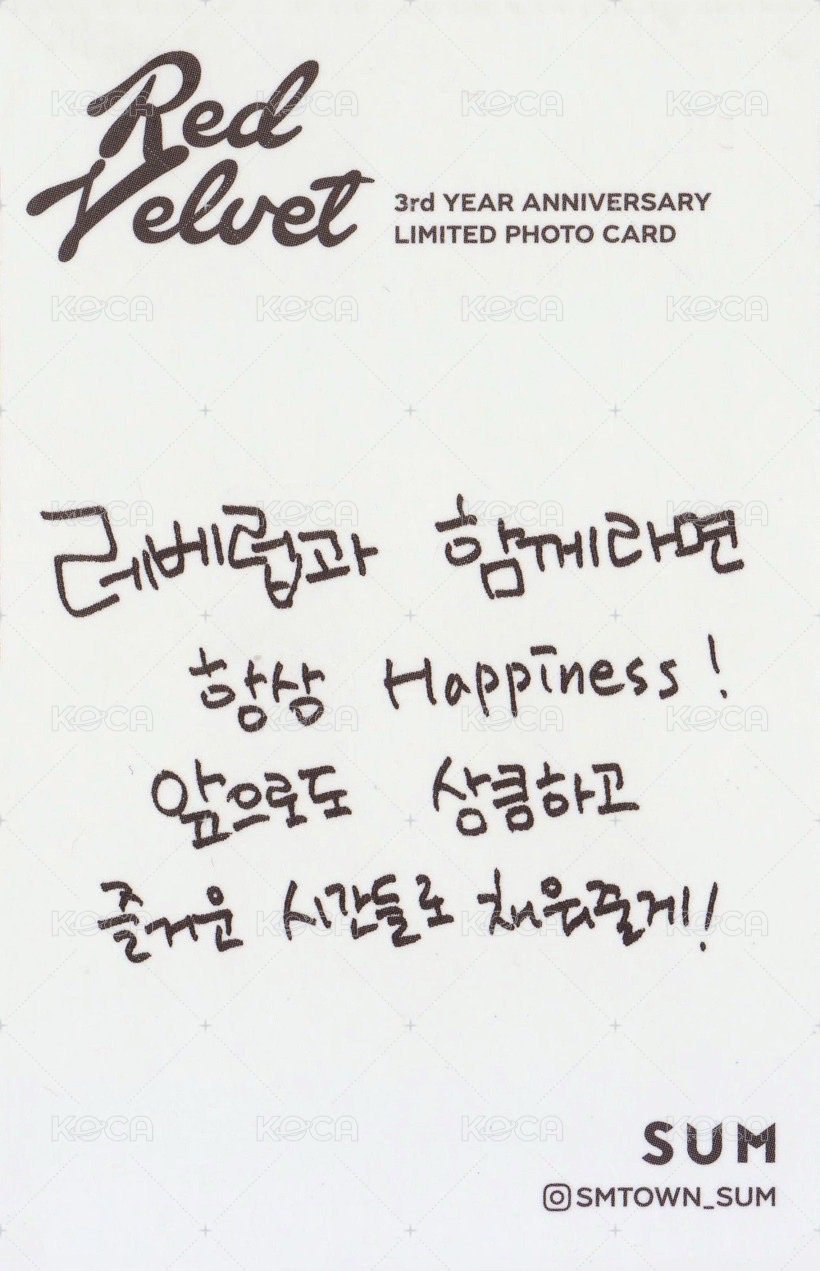 Red
Velvet
3rd YEAR ANNIVERSARY
LIMITED PHOTO CARD
레베럽과 함께라면
항상 Happiness!
앞으로도 상큼하고
즐거운 시간들로 채워줄게!
SUM
SMTOWN_SUM
KOCA